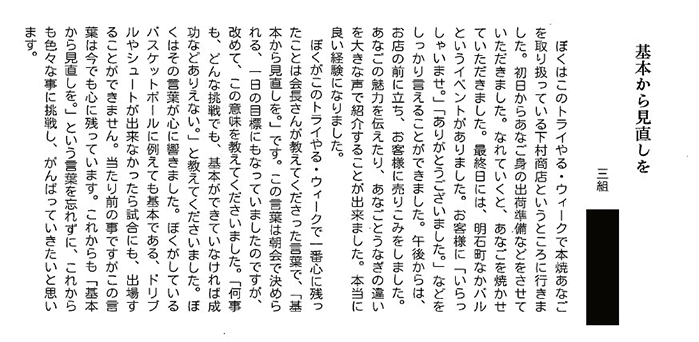 基本から見直しを
三組
　ぼくはこのトライやる・ウィークで本焼あなご
を取り扱っている下村商店というところに行きま
した。初日からあなご身の出荷準備などをさせて
いただきました。なれていくと、あなごを焼かせ
ていただきました。最終日には、明石町なかバル
というイベントがありました。お客様に「いらっ
しゃいませ。」「ありがとうございました。」などを
しっかり言えることができました。午後からは、
お店の前に立ち、お客様に売りこみをしました。
あなごの魅力を伝えたり、あなごとうなぎの違い
を大きな声で紹介することが出来ました。本当に
良い経験になりました。
　ぼくがこのトライやる・ウィークで一番心に残っ
たことは会長さんが教えてくださった言葉で、「基
本から見直しを。」です。この言葉は朝会で決めら
れる、一日の目標にもなっていましたのですが、
改めて、この意味を教えてくださいました。「何事
も、どんな挑戦でも、基本ができていなければ成
功などありえない。」と教えてくださいました。ぼ
くはその言葉が心に響きました。ぼくがしている
バスケットボールに例えても基本である、ドリブ
ルやシュートが出来なかったら試合にも、出場す
ることができません。当たり前の事ですがこの言
葉は今でも心に残っています。これからも「基本
から見直しを。」という言葉を忘れずに、これから
も色々な事に挑戦し、がんばっていきたいと思い
ます。